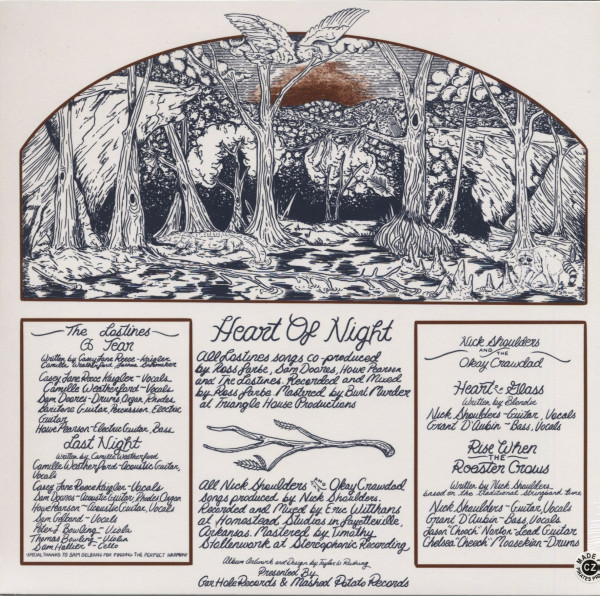 The Lostines
A Tear
Written by Casey Jane Reece-Kaigler
Camille Weatherford,
Casey Jane Reece Kaigler-Vocals
Camille Weatherford-Vocals
Sam Doores-Drums, Organ, Rhodes,
Baritone Guitar, Percussion, Electric
Guitar
Howe Pearson-Electric Guitar, Bass
Last Night
Written by Camille Weatherford
Camille Weatherford-Acoustic Guitar,
Vocals
Casey Jane Reece Kaigler-Vocals
Sam Doores-Acoustic Guitar, Rhodes, Organ
Howe Pearson-Acoustic Guitar, Vocals
Sam Gelband-Vocals
Peter J Bowling-Viola
Thomas Bowling-Violin
Sam Hollier-Cello
*SPECIAL THANKS TO SAM GELBAND FOR FINDING THE PERFECT HARMONY
Heart Of Night
All Lostines songs co-produced
by Ross Farbe, Sam Doores, Howe Pearson
and The Lostines. Recorded and Mixed
by Ross Farbe Mastered by Buri Murder
at Triangle House Productions
All Nick Shoulders and the Okay Crawdad
songs produced by Nick Shoulders.
Recorded and Mixed by Eric Witthans
at Homestead Studios in Fayetteville,
Arkansas. Mastered by Timothy
Stollenwerk at Stereophonic Recording
Album Artwork and Design by Tyler W Rushing
Presented By
Gar Hole Records & Mashed Potato Records
Nick Shoulders
AND THE
Okay Crawdad
Heart of Glass
Written by Blondie
Nick Shoulders-Guitar, Vocals
Grant D'Aubin-Bass, Vocals
Rise When
THE
Rooster Crows
Written by Nick Shoulders,
based on the traditional stringband tune
Nick Shoulders-Guitar, Vocals
Grant D'Aubin-Bass, Vocals
Jason "Chooch" Norton-Lead Guitar
Chelsea "Cheech" Moosekian-Drums
MADE
CZ
PIRATES PRESS